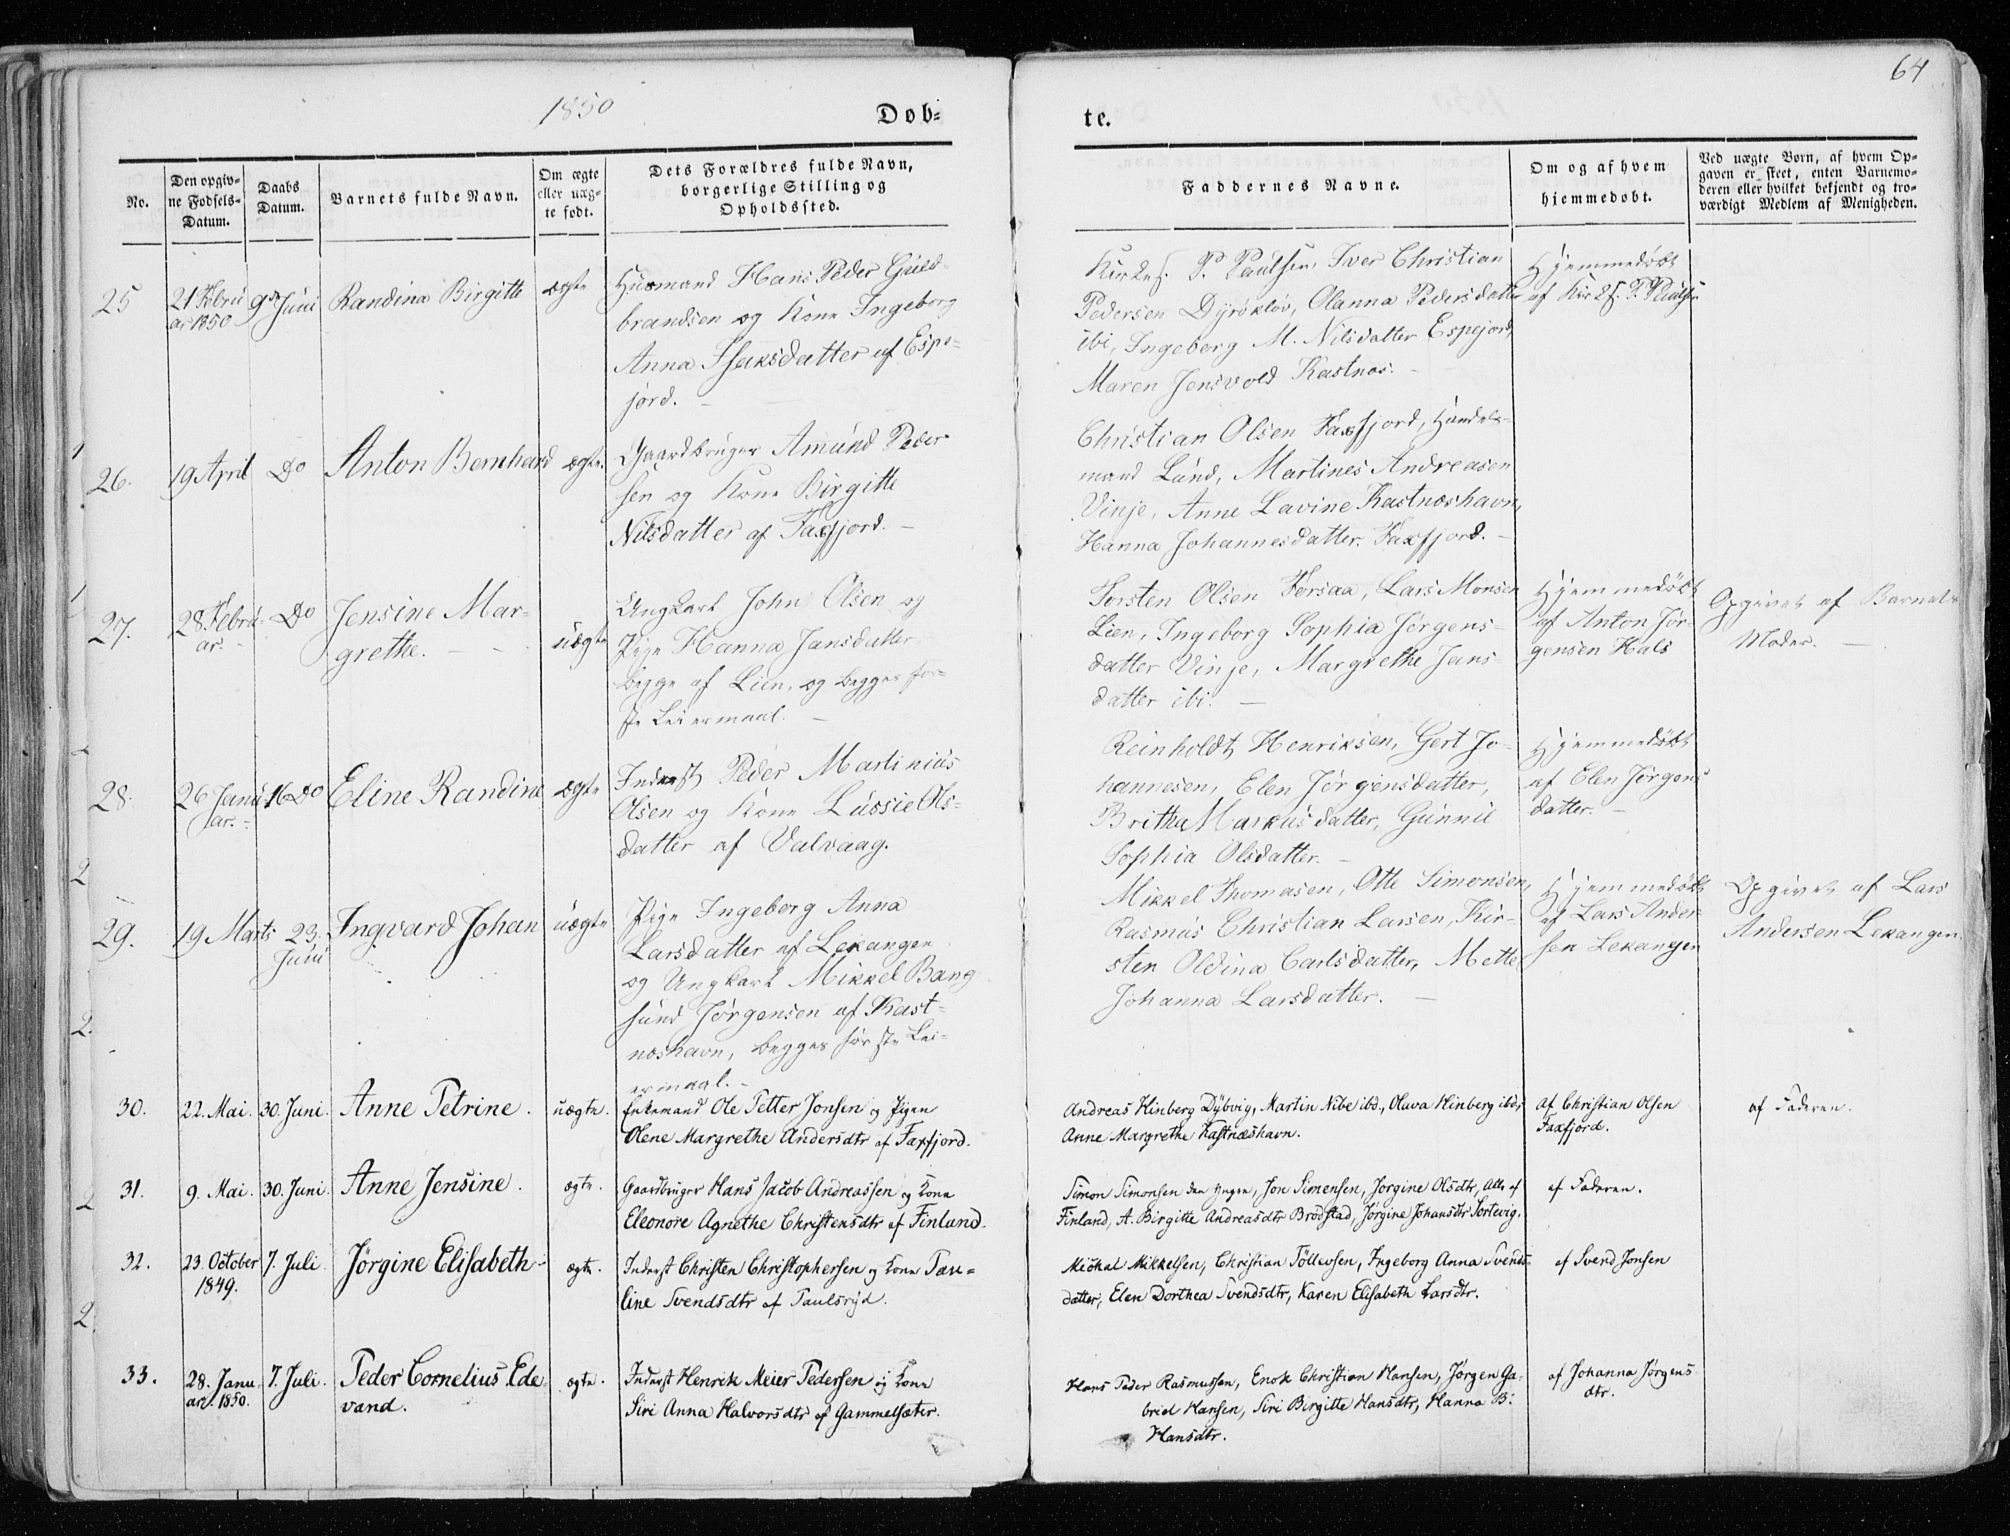 64
1850
Døb-
te.
No.
Den opgivne Fødsels-Datum.
Daabs Datum.
Barnets fulde Navn.
Om ægte eller uægte født.
Dets Forældres fulde Navn, borgerlige Stilling og Opholdssted.
Faddernes Navne.
Om og af hvem hjemmedøbt.
Ved uægte Børn, af hvem Opgaven er skeet, enten Barnemoderen eller hvilket bekjendt og troværdigt Medlem af Menigheden.
25
21 Febru
ar 1850
9de Juni
Randina Birgitte
ægte
Husmand Hans Peder Guld-
brandsen og Kone Ingeborg
Anna Isaksdatter af Espe-
jord.
Kirkes. P. Paulsen, Iver Christian
Pedersen Dyrøkløv, Olanna Pedersdatter
ibi, Ingeborg M. Nilsdatter Espejord,
Maren Jensvold Kastnæs.
Hjemmedøbt
af Kirkes. P. Paulsen
26.
19 April
Do
Anton Bernhard
ægte.
Gaardbruger Amund Peder-
sen og Kone Birgitte
Nilsdatter af Faxfjord.
Christian Olsen Faxfjord, Handels-
mand Lund, Martines Andreasen
Vinje, Anne Lavine Kastnæshavn,
Hanna Johannesdatter. Faxfjord.
27.
28 Febru-
ar.
Do
Jensine Mar-
grethe.
uægte
Ungkarl John Olsen og
Pige Hanna Jansdatter
begge af Lien, og begges før-
ste Leiermaal.
Torsten Olsen Forsaa, Lars Monsen
Lien, Ingeborg Sophia Jørgens-
datter Vinje, Margrethe Jans-
datter ibi.
Hjemmedøbt
af Anton Jør-
gensen Hals
Opgivet af Barnets
Moder.
28.
26 Janu
ar.
16 Do
Eline Randine
ægte
Inderst Peder Martinius
Olsen og Kone Lussie Ols-
datter af Valvaag.
Reinholdt Henriksen, Gert Jo-
hannesen, Elen Jørgensdatter,
Britha Markusdatter, Gunnil
Sophia Olsdatter.
Hjemmedøbt
af Elen Jørgens
datter.
29.
19 Marts
23.
Juni
Ingvard Johan
uægte
Pige Ingeborg Anna
Larsdatter af Lekangen
og Ungkarl Mikkel Bang
sund Jørgensen af Kast-
næshavn, begges første Lei-
ermaal.
Mikkel Thomasen, Otte Simonsen,
Rasmus Christian Larsen, Kir-
sten Oldina Carlsdatter, Mette
Johanna Larsdatter.
Hjemmedøbt
af Lars Ander-
sen Lekangen
Opgivet af Lars
Andersen Lekangen.
30.
22. Mai.
30. Juni.
Anne Petrine.
uægte.
Enkemand Ole Petter Jonsen og Pigen
Olene Margrethe Andersdtr af Faxfjord.
Andreas Hinberg Dybvig, Martin Nibe ibd., Olava Hinberg ibd,
Anne Margrethe Kastnæshavn.
Af Christian Olsen
Faxfjord.
af Faderen.
31.
9. Mai.
30. Juni.
Anne Jensine.
ægte.
Gaardbruger Hans Jacob Andreassen og Kone
Eleonore Agnethe Christensdtr af Finland.
Simon Simonsen den yngre, Jon Simensen, Jørgine Olsdtr, Alle af
Finland, A. Birgitte Andreasdtr Brødstad, Jørgine Johansdtr Sortevig.
af Faderen.
32.
23. October
1849.
7. Juli
Jørgine Elisabeth
ægte.
Inderst Christen Christophersen og Kone Pau-
line Svendsdtr af Paulsryd.
Michal Mikkelsen, Christian Tøllevsen, Ingeborg Anna Svends-
datter, Elen Dorthea Svendsdtr, Karen Elisabeth Larsdtr.
af Svend Jonsen
33.
28. Janu
ar. 1850.
7. Juli.
Peder Cornelius Ede
vand.
ægte.
Inderst Henrik Meier Pedersen og Kone
Siri Anna Halvorsdtr af Gammelsæter.
Hans Peder Rasmussen, Enok Christian Hansen, Jørgen Ga-
briel Hansen, Siri Birgitte Hansdtr, Hanna B:
Hansdtr.
af Johanna Jørgens
dtr.